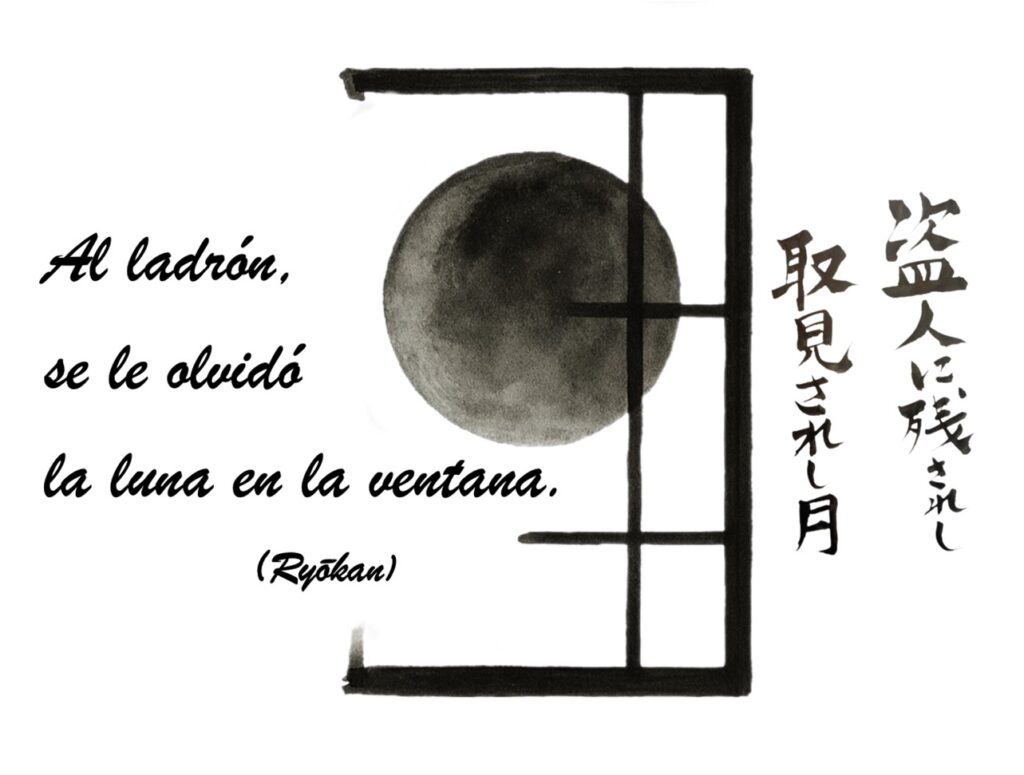 Al ladrón,
se le olvidó
la luna en la ventana.
(Ryōkan)
盗人に残されし
取見されし月